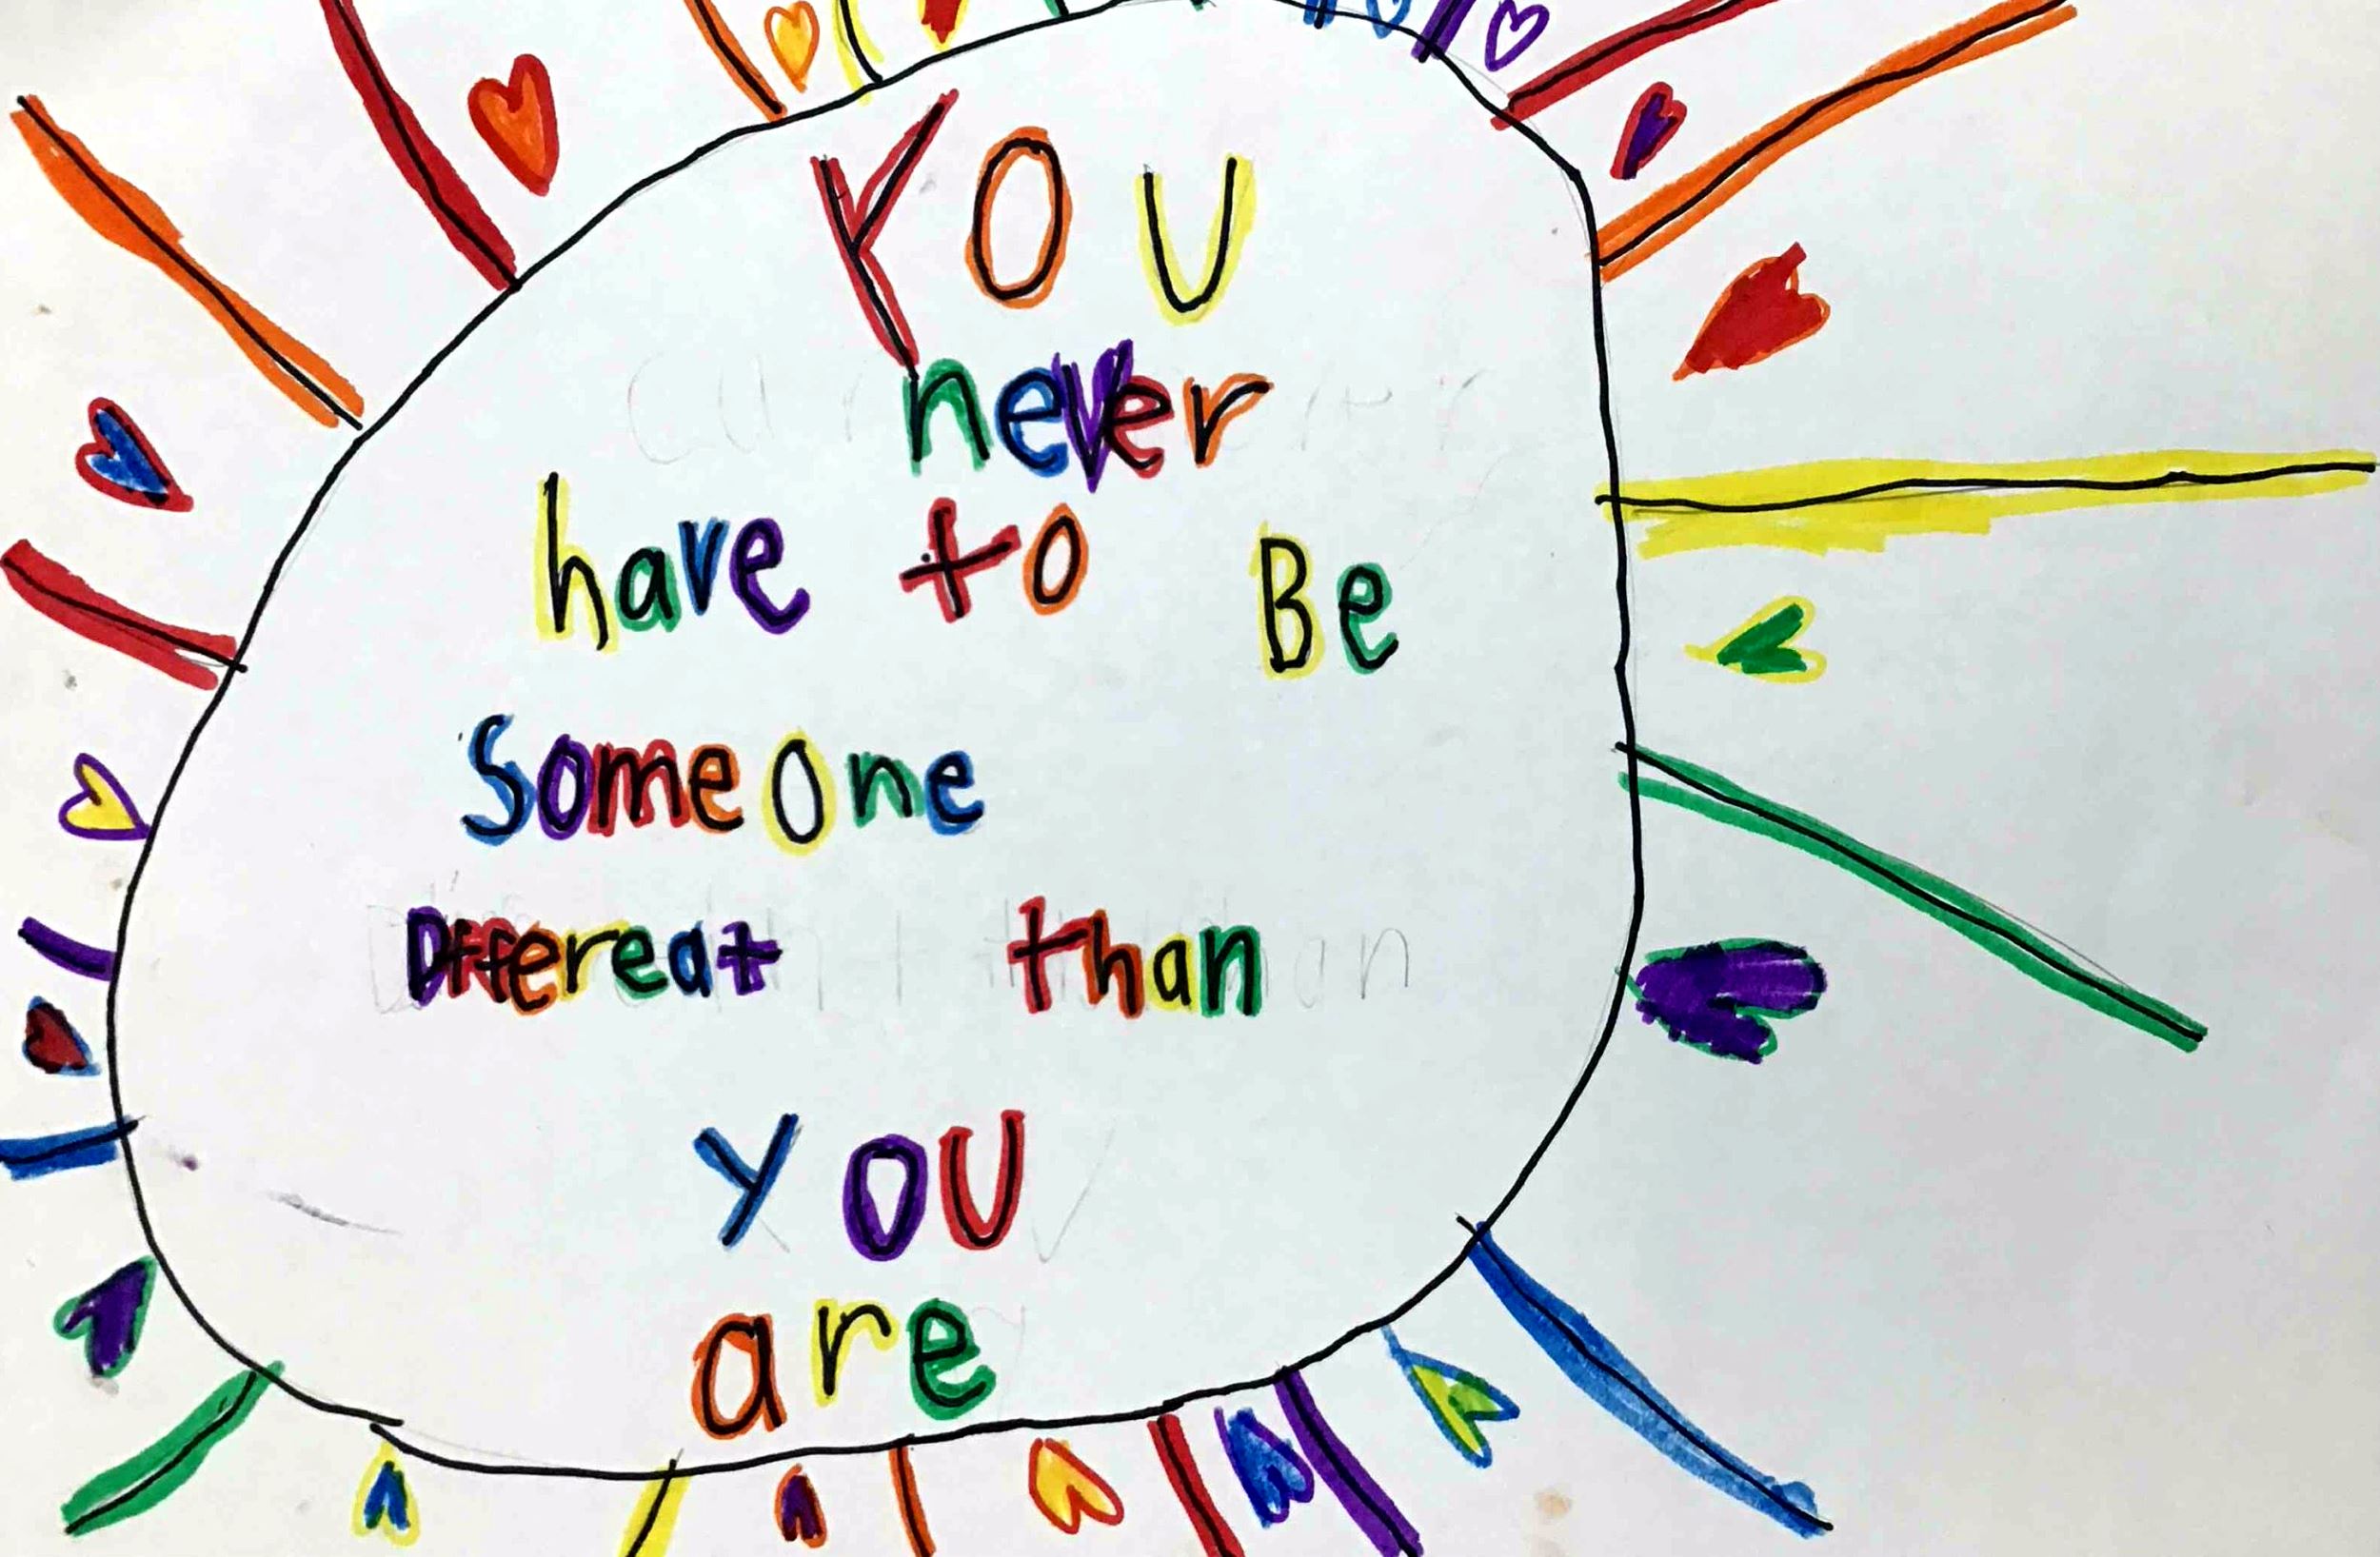 YOU
never
have to Be
someone
Dffereat than
YOU
are